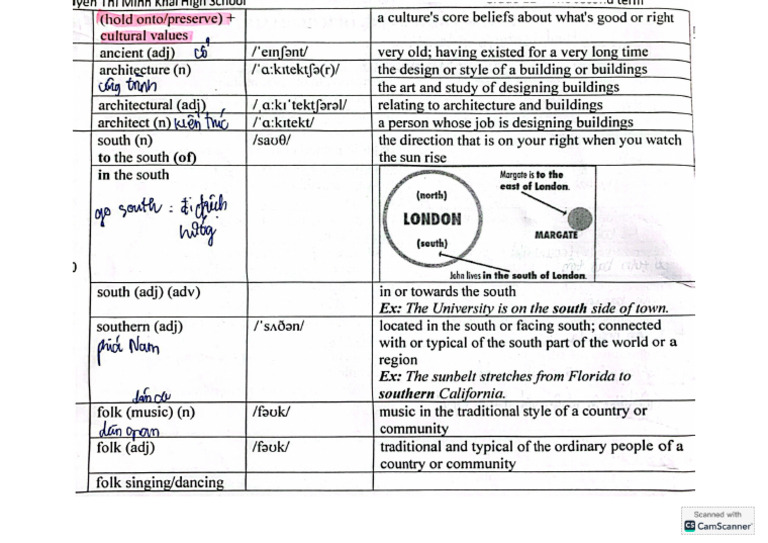 Thị Minh Khai High School
(hold onto/preserve) + a culture's core beliefs about what's good or right
cultural values
ancient (adj) cổ /ˈeɪnʃənt/ very old; having existed for a very long time
architecture (n) /ˈɑːkɪtektʃə(r)/ the design or style of a building or buildings
công trình the art and study of designing buildings
architectural (adj) /ˌɑːkɪˈtektʃərəl/ relating to architecture and buildings
architect (n) kiến trúc /ˈɑːkɪtekt/ a person whose job is designing buildings
south (n) /saʊθ/ the direction that is on your right when you watch
to the south (of) the sun rise
in the south
Margate is to the
east of London.
(north)
LONDON
(south)
MARGATE
John lives in the south of London.
go south : đi
hướng
south (adj) (adv) in or towards the south
Ex: The University is on the south side of town.
southern (adj) /ˈsʌðən/ located in the south or facing south; connected
phía Nam with or typical of the south part of the world or a
region
Ex: The sunbelt stretches from Florida to
southern California.
folk (music) (n) /fəʊk/ music in the traditional style of a country or
dân gian community
folk (adj) /fəʊk/ traditional and typical of the ordinary people of a
country or community
folk singing/dancing
Scanned with
CS CamScanner